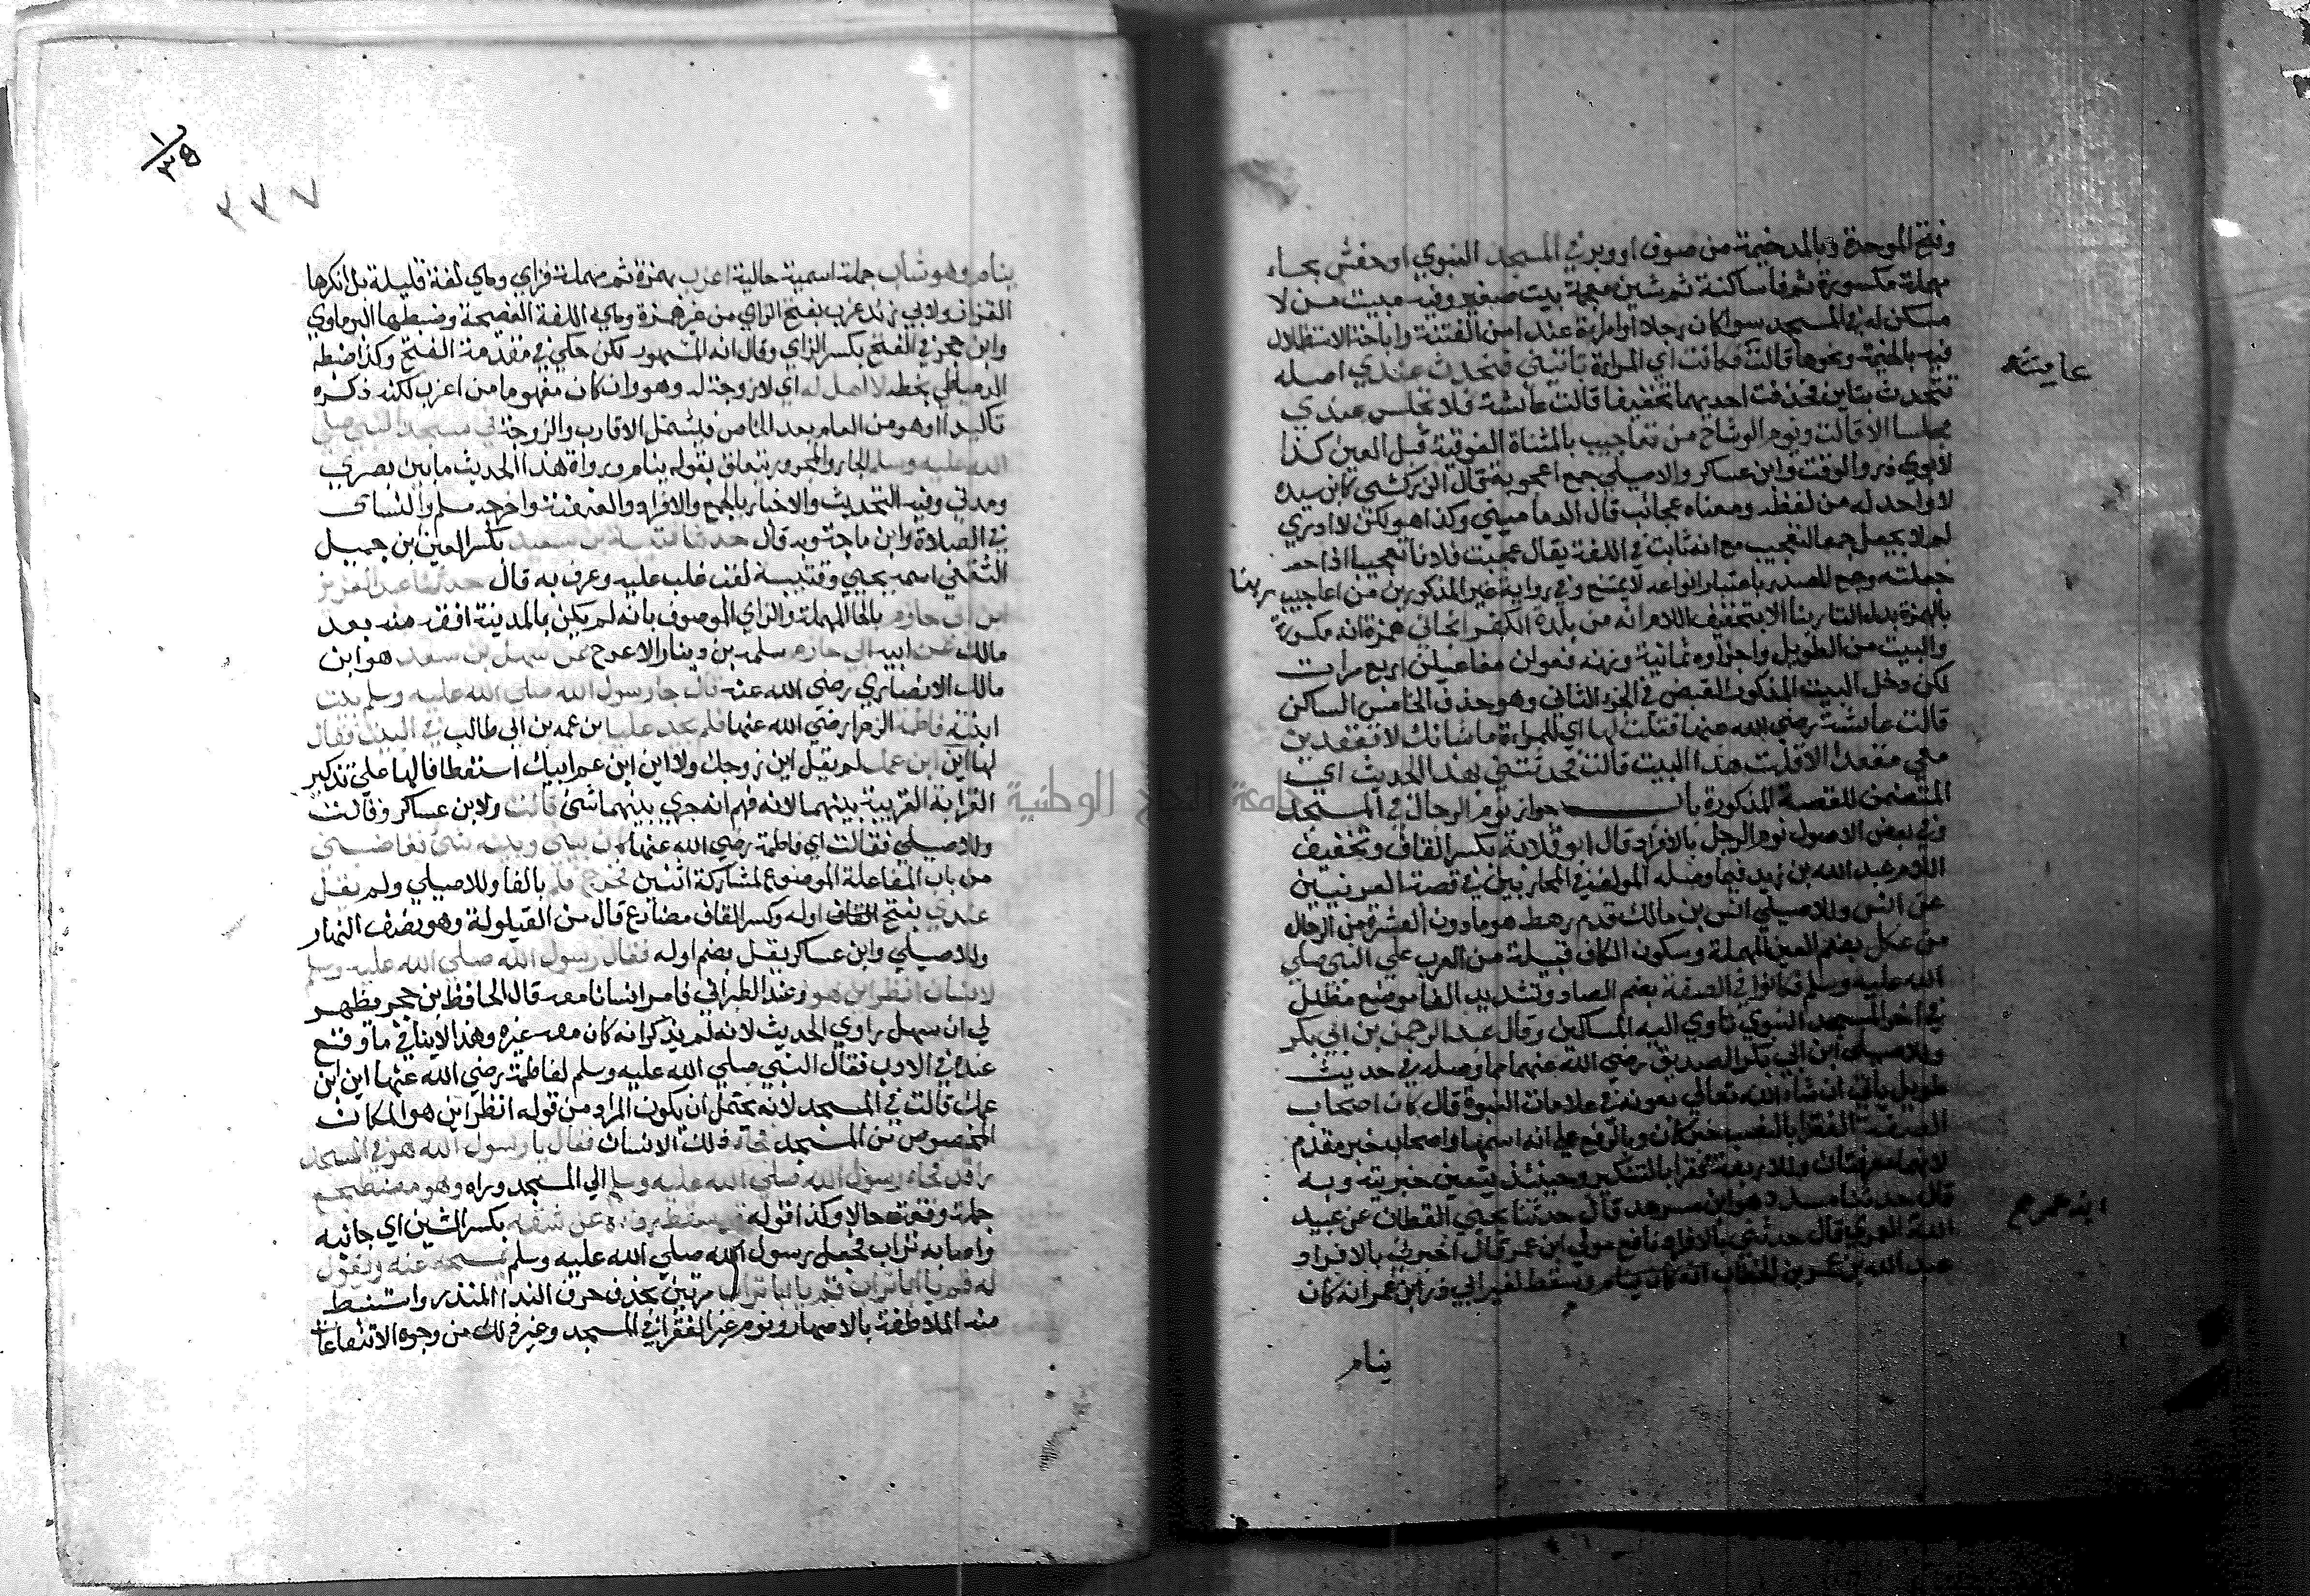 وفتح الموحدة وبالمد خيمة من صوف او وبر في المسجد النبوي او حفش بحاء
مهملة مكسورة ثم فا ساكنة ثم شين معجمة بيت صغير وفيه مبيت من لا
مسكن له في المسجد سوا كان رجلا او امراة عند امن الفتنة واباحة الاستظلال
فيه بالخيمة ونحوها قالت فكانت اي المراة تاتيني فتحدث عندي اصله
عايشه
تتحدث بتاين فحذفت احديهما تخفيفا قالت عائشة فلا تجلس عندي
مجلسا الا قالت ويوم الوشاح من تعاجيب بالمثناة الفوقية قبل العين كذا
لابوي ذر والوقت وابن عساكر والاصيلي جمع اعجوبة قال الزركشي كابن سيده
لا واحد له من لفظه ومعناه عجائب قال الدماميني وكذا هو لكن لا ادري
لم لا يجعل جمعا لتعجيب مع انه ثابت في اللغة يقال عجبت فلانا تعجيبا اذا
جعلته وجمع المصدر باعتبار انواعه لا يمتنع وفي رواية غير المذكورين من اعاجيب ربنا
بالهمزة بدل التا ربنا الا بتخفيف اللام انه من بلدة الكفر انجاني همزة انه مكسورة
والبيت من الطويل واجزاوه ثمانية وزنه فعولن مفاعيلن اربع مرات
لكن دخل البيت المذكور القبض في الجزء الثاني وهو حذف الخامس الساكن
قالت عائشة رضي الله عنها فقلت لها اي للمراة ما شانك لا تقعدين
معي مقعدا الا قلت هذا البيت قالت فحدثتني بهذا الحديث اي
المتضمن للقصة المذكورة باب جواز نوم الرجال في المسجد
وفي بعض الاصول نوم الرجل بالافراد قال ابو قلابة بكسر القاف وتخفيف
اللام عبد الله بن زيد فيما وصله المولف في المحاربين في قصة العرنيين
عن انس وللاصيلي انس بن مالك قدم رهط هو ما دون العشرة من الرجال
من عكل بضم العين المهملة وسكون الكاف قبيلة من العرب علي النبي صلي
الله عليه وسلم فكانوا في الصفة بضم الصاد وتشديد الفا موضع مظلل
في اخر المسجد النبوي تاوي اليه المساكين وقال عبد الرحمن بن ابي بكر
وللاصيلي ابن ابي بكر الصديق رضي الله عنهما مما وصله في حديث
طويل ياتي ان شاء الله تعالي بعونه في علامات النبوة قال كان اصحاب
الصفة الفقرا بالنصب خبر كان وبالرفع علي انه اسمها واصحاب خبر مقدم
لانهما معرفتان وللاربعة فقرا بالتنكير وحينئذ يتعين خبريته وبه
قال حدثنا مسدد هو ابن مسرهد قال حدثنا يحيي القطان عن عبيد
الله العمري قال حدثني بالافراد نافع مولي ابن عمر قال اخبرني بالافراد
عبد الله بن عمر بن الخطاب انه كان ينام وسقط لغير ابي ذر ابن عمر انه كان
ينام
٢٢٧
ينام وهو شاب جملة اسمية حالية اعزب بهمزة ثم مهملة فزاي وهي لغة قليلة بل انكرها
القزاز ولابي ذر عزب بفتح الزاي من غير همزة وهي اللغة الفصيحة وضبطها البرماوي
وابن حجر في الفتح بكسر الزاي وقال انه المشهور لكن حكي في مقدمة الفتح وكذا ضبطه
الدمياطي بخطه لا اهل له اي لا زوجة له وهو وان كان مفهوما من اعزب لكنه ذكره
تاكيدا او هو من العام بعد الخاص فيشتمل الاقارب والزوجة في مسجد النبي صلي
الله عليه وسلم الجار والمجرور يتعلق بقوله ينام ورواة هذا الحديث ما بين بصري
ومدني وفيه التحديث والاخبار بالجمع والافراد والعنعنة واخرجه مسلم والنساي
في الصلاة وابن ماجة وبه قال حدثنا قتيبة بن سعيد بكسر العين ابن جميل
الثقفي اسمه يحيي وقتيبة لقب غلب عليه وعرف به قال حدثنا عبد العزيز
ابن ابي حازم بالحا المهملة والزاي الموصوف بانه لم يكن بالمدينة افقه منه بعد
مالك عن ابيه ابي حازم سلمة بن دينار الاعرج عن سهل بن سعد هو ابن
مالك الانصاري رضي الله عنه قال جا رسول الله صلي الله عليه وسلم بيت
ابنته فاطمة الزهرا رضي الله عنها فلم يجد عليا ابن عمه بن ابي طالب في البيت فقال
لها اين ابن عمك لم يقل اين زوجك ولا ابن ابن عم ابيك استعطافا لها علي تذكير
القرابة القريبة بينهما لانه فهم انه جري بينهما شئ قالت ولابن عساكر وقالت
وللاصيلي فقالت اي فاطمة رضي الله عنها كان بيني وبينه شئ فغاضبني
من باب المفاعلة الموضوع لمشاركة اثنين فخرج فلم بالفا وللاصيلي ولم يقل
عندي بفتح القاف اوله وكسر القاف مضارع قال من القيلولة وهو نصف النهار
وللاصيلي وابن عساكر يقل بضم اوله فقال رسول الله صلي الله عليه وسلم
لانسان انظر اين هو وعند الطبراني فامر انسانا معه قال الحافظ بن حجر يظهر
لي ان سهل راوي الحديث لانه لم يذكر انه كان معه غيره وهذا لا ينافي ما وقع
عنده في الادب فقال النبي صلي الله عليه وسلم لفاطمة رضي الله عنها اين ابن
عمك قالت في المسجد لانه يحتمل ان يكون المراد من قوله انظر اين هو المكان
المخصوص من المسجد فجاء ذلك الانسان فقال يا رسول الله هو في المسجد
راقد فجاء رسول الله صلي الله عليه وسلم الي المسجد وراه وهو مضطجع
جملة وقعت حالا وكذا قوله قد سقط رداه عن شقه بكسر الشين اي جانبه
واصابه تراب فجعل رسول الله صلي الله عليه وسلم يمسحه عنه ويقول
له قم يا ابا تراب قم يا ابا تراب مرتين بحذف حرف الندا المنذر واستنبط
منه الملاطفة بالاصهار ونوم غير الفقرا في المسجد وغير ذلك من وجوه الانتفاعات
جامعة النجاح الوطنية